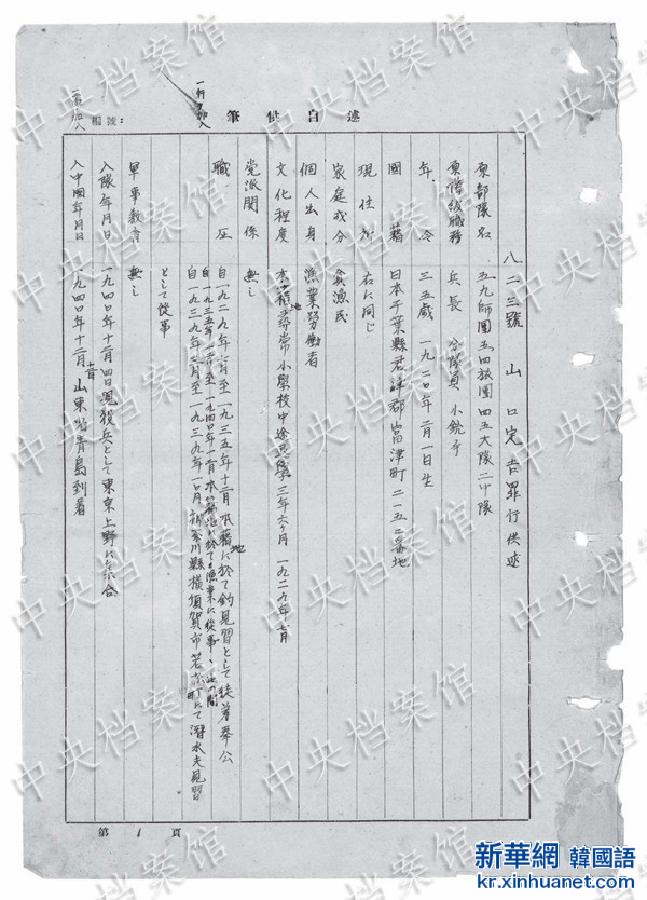 筆供白述
編號:
一行加入
一字加入
八二三號 山口 吉罪行供述
原部隊名 五九師團五四旅團四五大隊二中隊
原階級職務 兵長 分隊員 小銃手
年 令 三五歳 一九二〇年二月一日生
國 籍 日本千葉縣君津郡富津町二一五二番地
現住所 右に同じ
家庭成分 貧漁民
個人出身 漁業労働者
文化程度 本籍地尋常小學校中途退學三年六ヶ月 一九二九年 月
党派関係 無し
職 歴 自一九二九年 月至一九三五年十二月 本籍地に於て釣見習として 奉公
自一九三五年 月至一九四〇年十一月 本籍地に於て漁業に從事 此の間
自一九三九年三月至一九三九年一〇月 神奈川縣横須賀市若松町にて潜水夫見習
として從事
軍事教育 無し
入隊年月日 一九四〇年十二月四日現役兵として東京上野に集合
入中國年月日 一九四〇年十二月十 日山東省青島到着
第 1 頁
中央档案馆
新華網 韓國語
kr.xinhuanet.com